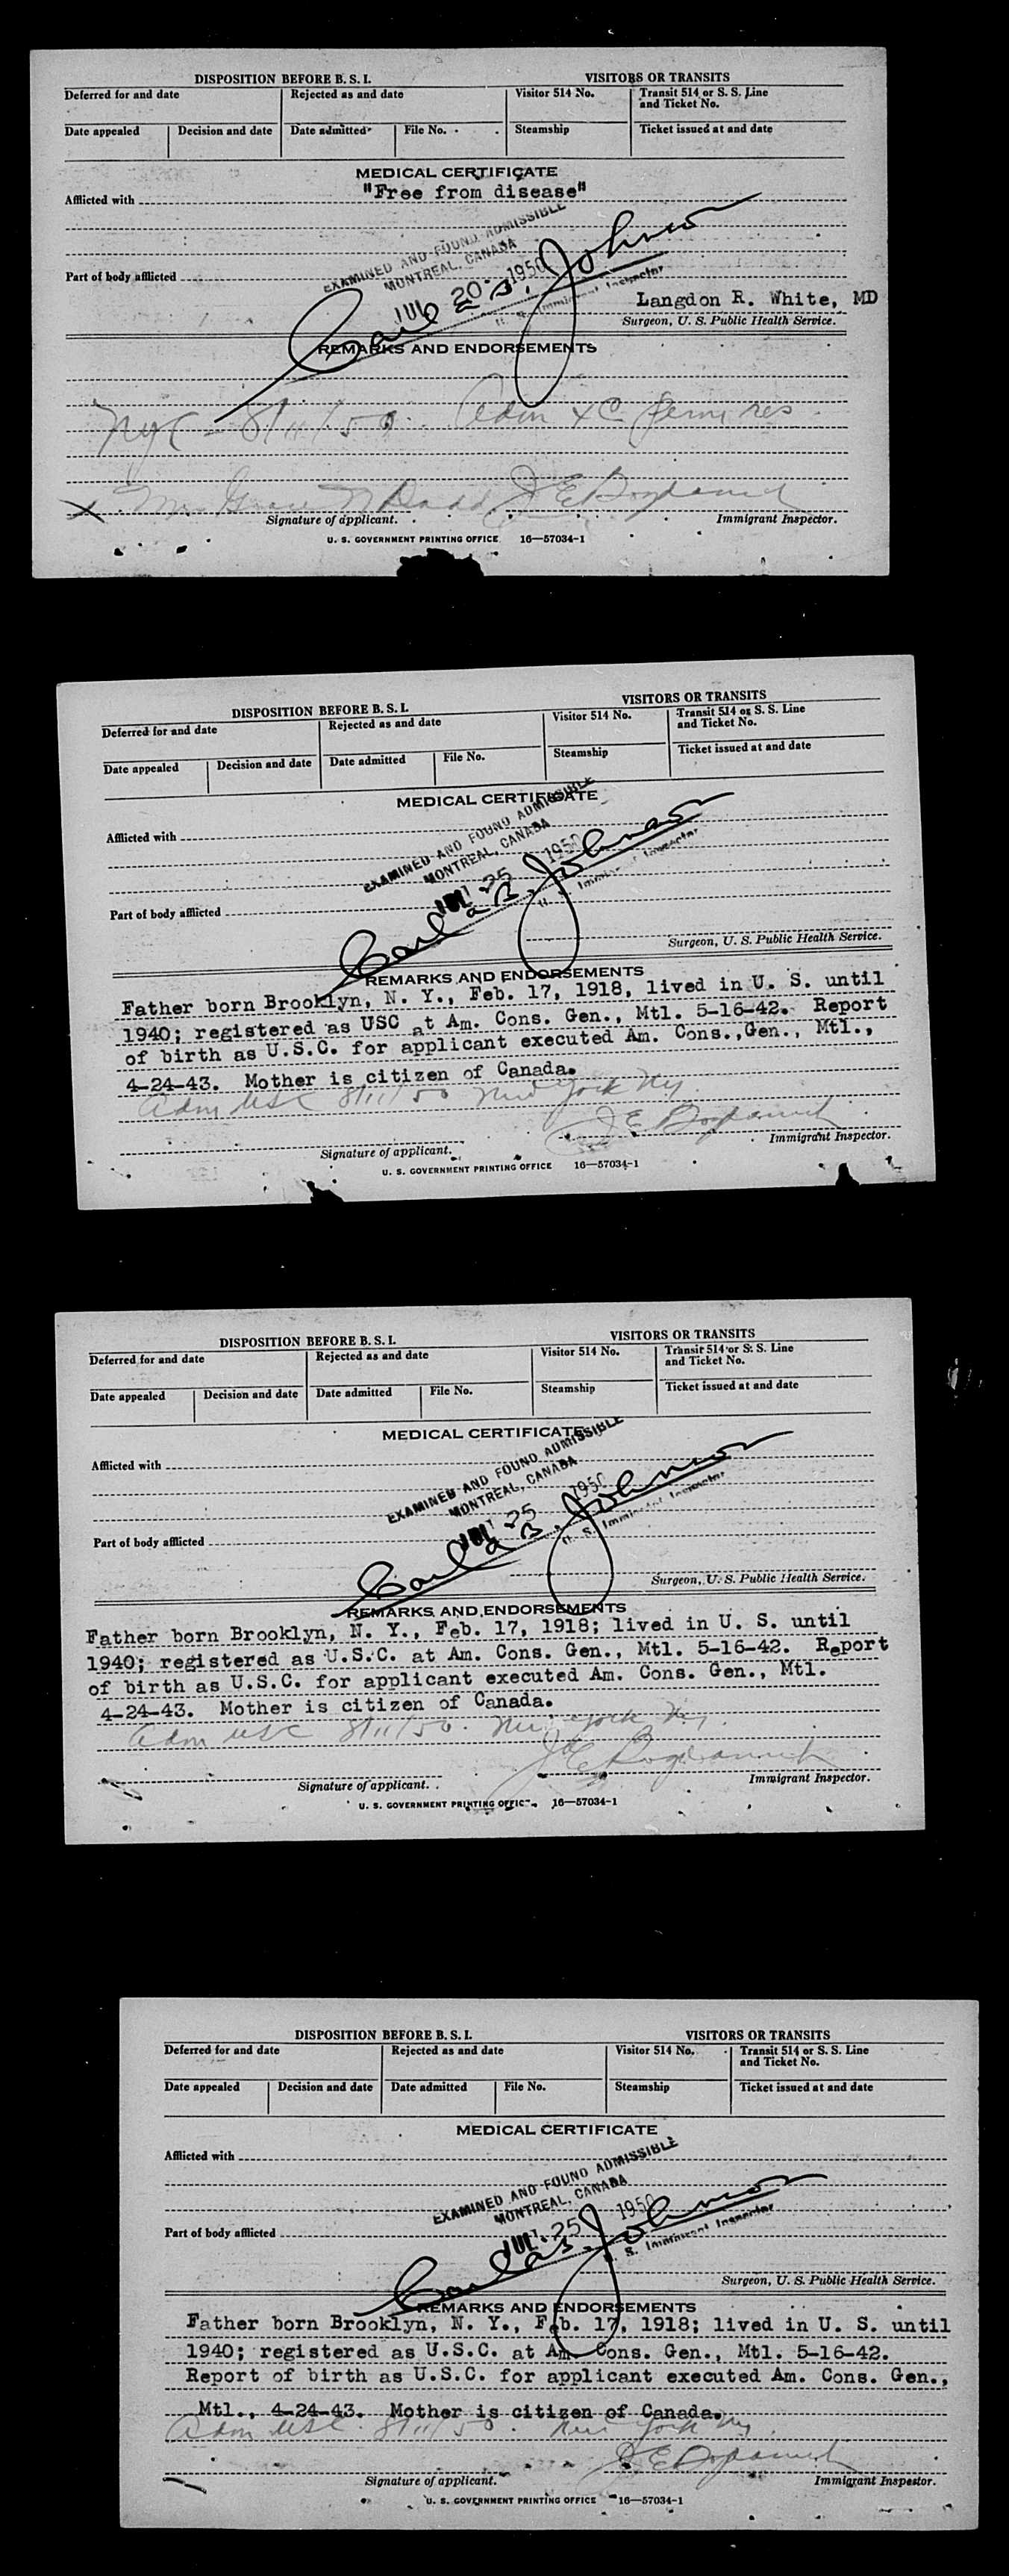 DISPOSITION BEFORE B. S. I. VISITORS OR TRANSITS
Deferred for and date Rejected as and date Visitor 514 No. Transit 514 or S. S. Line and Ticket No.
Date appealed Decision and date Date admitted File No. Steamship Ticket issued at and date
MEDICAL CERTIFICATE
Afflicted with "Free from disease"
EXAMINED AND FOUND ADMISSIBLE
MONTREAL, CANADA
JUL 20 1950
Carl B. Johnson
U. S. Immigrant Inspector
Part of body afflicted
Langdon R. White, MD
Surgeon, U. S. Public Health Service.
REMARKS AND ENDORSEMENTS
NYC - 8/11/50. Adm perm res.
x Grace
Signature of applicant. Immigrant Inspector.
U. S. GOVERNMENT PRINTING OFFICE 16—57034-1
DISPOSITION BEFORE B. S. I. VISITORS OR TRANSITS
Deferred for and date Rejected as and date Visitor 514 No. Transit 514 or S. S. Line and Ticket No.
Date appealed Decision and date Date admitted File No. Steamship Ticket issued at and date
MEDICAL CERTIFICATE
EXAMINED AND FOUND ADMISSIBLE
Afflicted with
MONTREAL, CANADA
JUL 25 1950
Carl B. Johnson
U. S. Immigrant Inspector
Part of body afflicted
Surgeon, U. S. Public Health Service.
REMARKS AND ENDORSEMENTS
Father born Brooklyn, N. Y., Feb. 17, 1918, lived in U. S. until
1940; registered as USC at Am. Cons. Gen., Mtl. 5-16-42. Report
of birth as U.S.C. for applicant executed Am. Cons.,Gen., Mtl.,
4-24-43. Mother is citizen of Canada.
Adm USC 8/11/50 New York NY
Signature of applicant. Immigrant Inspector.
U. S. GOVERNMENT PRINTING OFFICE 16—57034-1
DISPOSITION BEFORE B. S. I. VISITORS OR TRANSITS
Deferred for and date Rejected as and date Visitor 514 No. Transit 514 or S. S. Line and Ticket No.
Date appealed Decision and date Date admitted File No. Steamship Ticket issued at and date
MEDICAL CERTIFICATE
EXAMINED AND FOUND ADMISSIBLE
Afflicted with
MONTREAL, CANADA
JUL 25 1950
Carl B. Johnson
U. S. Immigrant Inspector
Part of body afflicted
Surgeon, U. S. Public Health Service.
REMARKS AND ENDORSEMENTS
Father born Brooklyn, N. Y., Feb. 17, 1918; lived in U. S. until
1940; registered as U.S.C. at Am. Cons. Gen., Mtl. 5-16-42. Report
of birth as U.S.C. for applicant executed Am. Cons. Gen., Mtl.
4-24-43. Mother is citizen of Canada.
Adm USC 8/11/50. New York NY.
Signature of applicant. Immigrant Inspector.
U. S. GOVERNMENT PRINTING OFFICE 16—57034-1
DISPOSITION BEFORE B. S. I. VISITORS OR TRANSITS
Deferred for and date Rejected as and date Visitor 514 No. Transit 514 or S. S. Line and Ticket No.
Date appealed Decision and date Date admitted File No. Steamship Ticket issued at and date
MEDICAL CERTIFICATE
Afflicted with
EXAMINED AND FOUND ADMISSIBLE
MONTREAL, CANADA
JUL 25 1950
Carl B. Johnson
U. S. Immigrant Inspector
Part of body afflicted
Surgeon, U. S. Public Health Service.
REMARKS AND ENDORSEMENTS
Father born Brooklyn, N. Y., Feb. 17, 1918; lived in U. S. until
1940; registered as U.S.C. at Am. Cons. Gen., Mtl. 5-16-42.
Report of birth as U.S.C. for applicant executed Am. Cons. Gen.,
Mtl., 4-24-43. Mother is citizen of Canada.
Adm USC. 8/11/50. New York NY.
Signature of applicant. Immigrant Inspector.
U. S. GOVERNMENT PRINTING OFFICE 16—57034-1